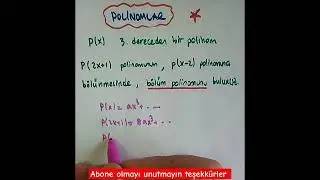 POLİNOMLAR
P(x) 3. dereceden bir polinom
P(2x+1) polinomunun, p(x-2) polinomuna
bölünmesinde, bölüm polinomunu bulunuz.
P(x) = ax³ + ...
P(2x+1) = 8ax³ + ...
P(
Abone olmayı unutmayın teşekkürler